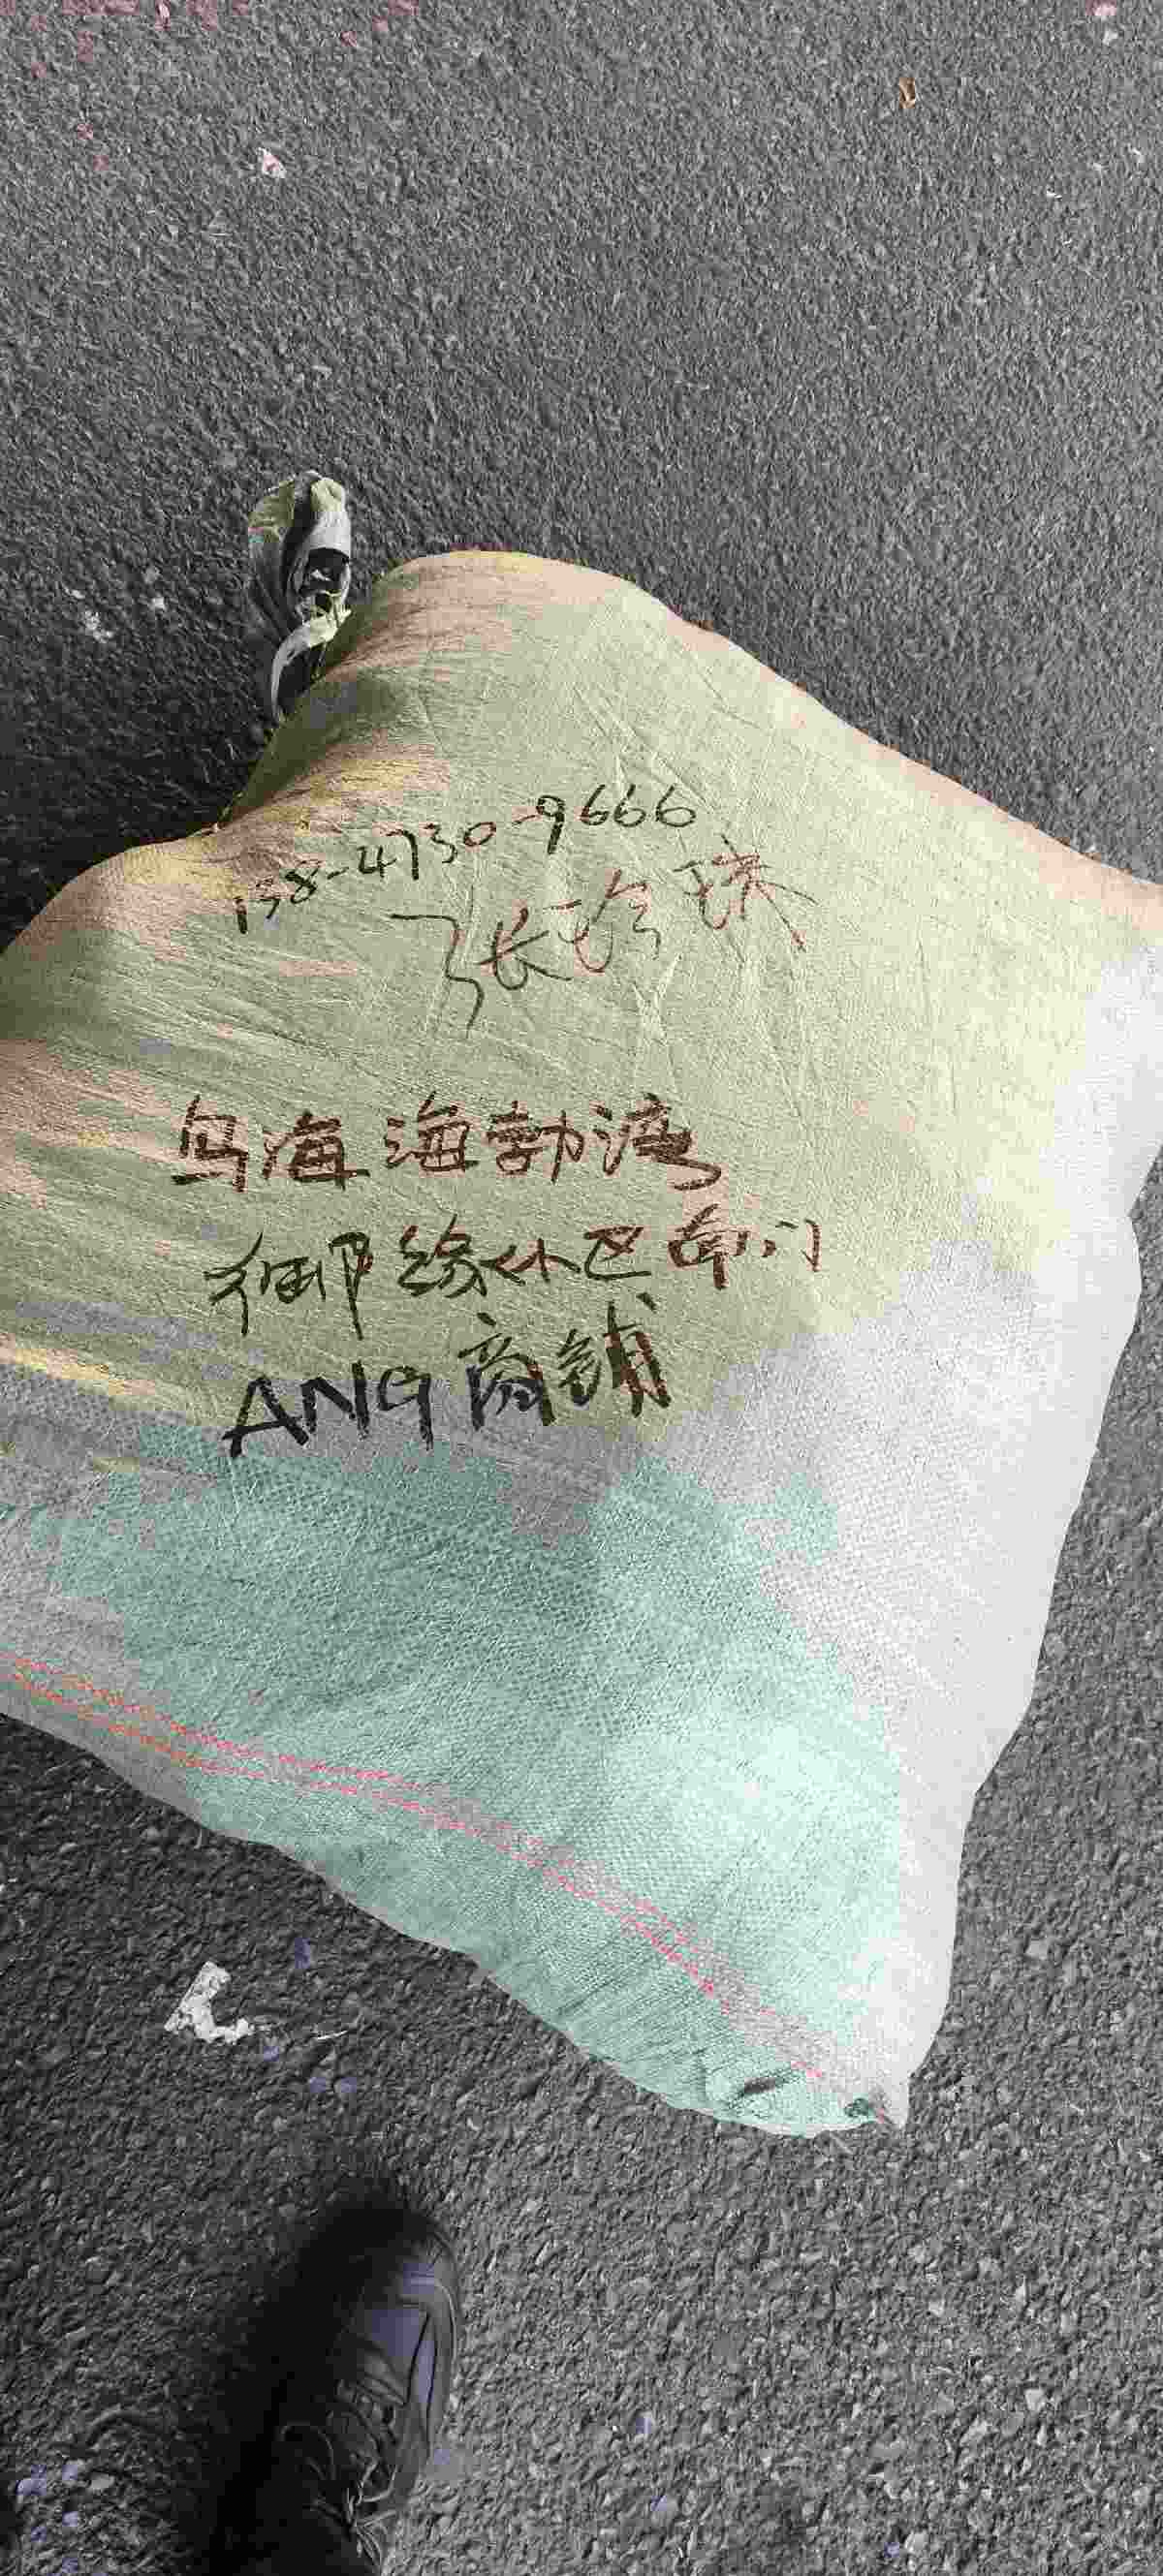 138-4730-9666
张珍珠
乌海海勃湾
御缘小区南门
ANG商铺